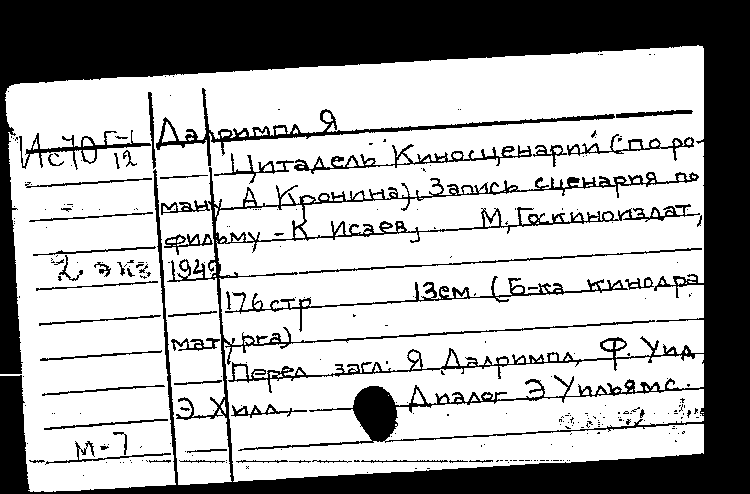 Ис70 Г-1 Далримпл, Я
12
Цитадель Киносценарий (по ро-
ману А. Кронина), Запись сценария по
фильму - К. Исаев, М, Госкиноиздат,
2 экз 1949.
176 стр 13см. (Б-ка кинодра
матурга)
Перед загл: Я Далримпл, Ф. Уид,
Э. Хилл, Диалог Э Уильямс.
М-7